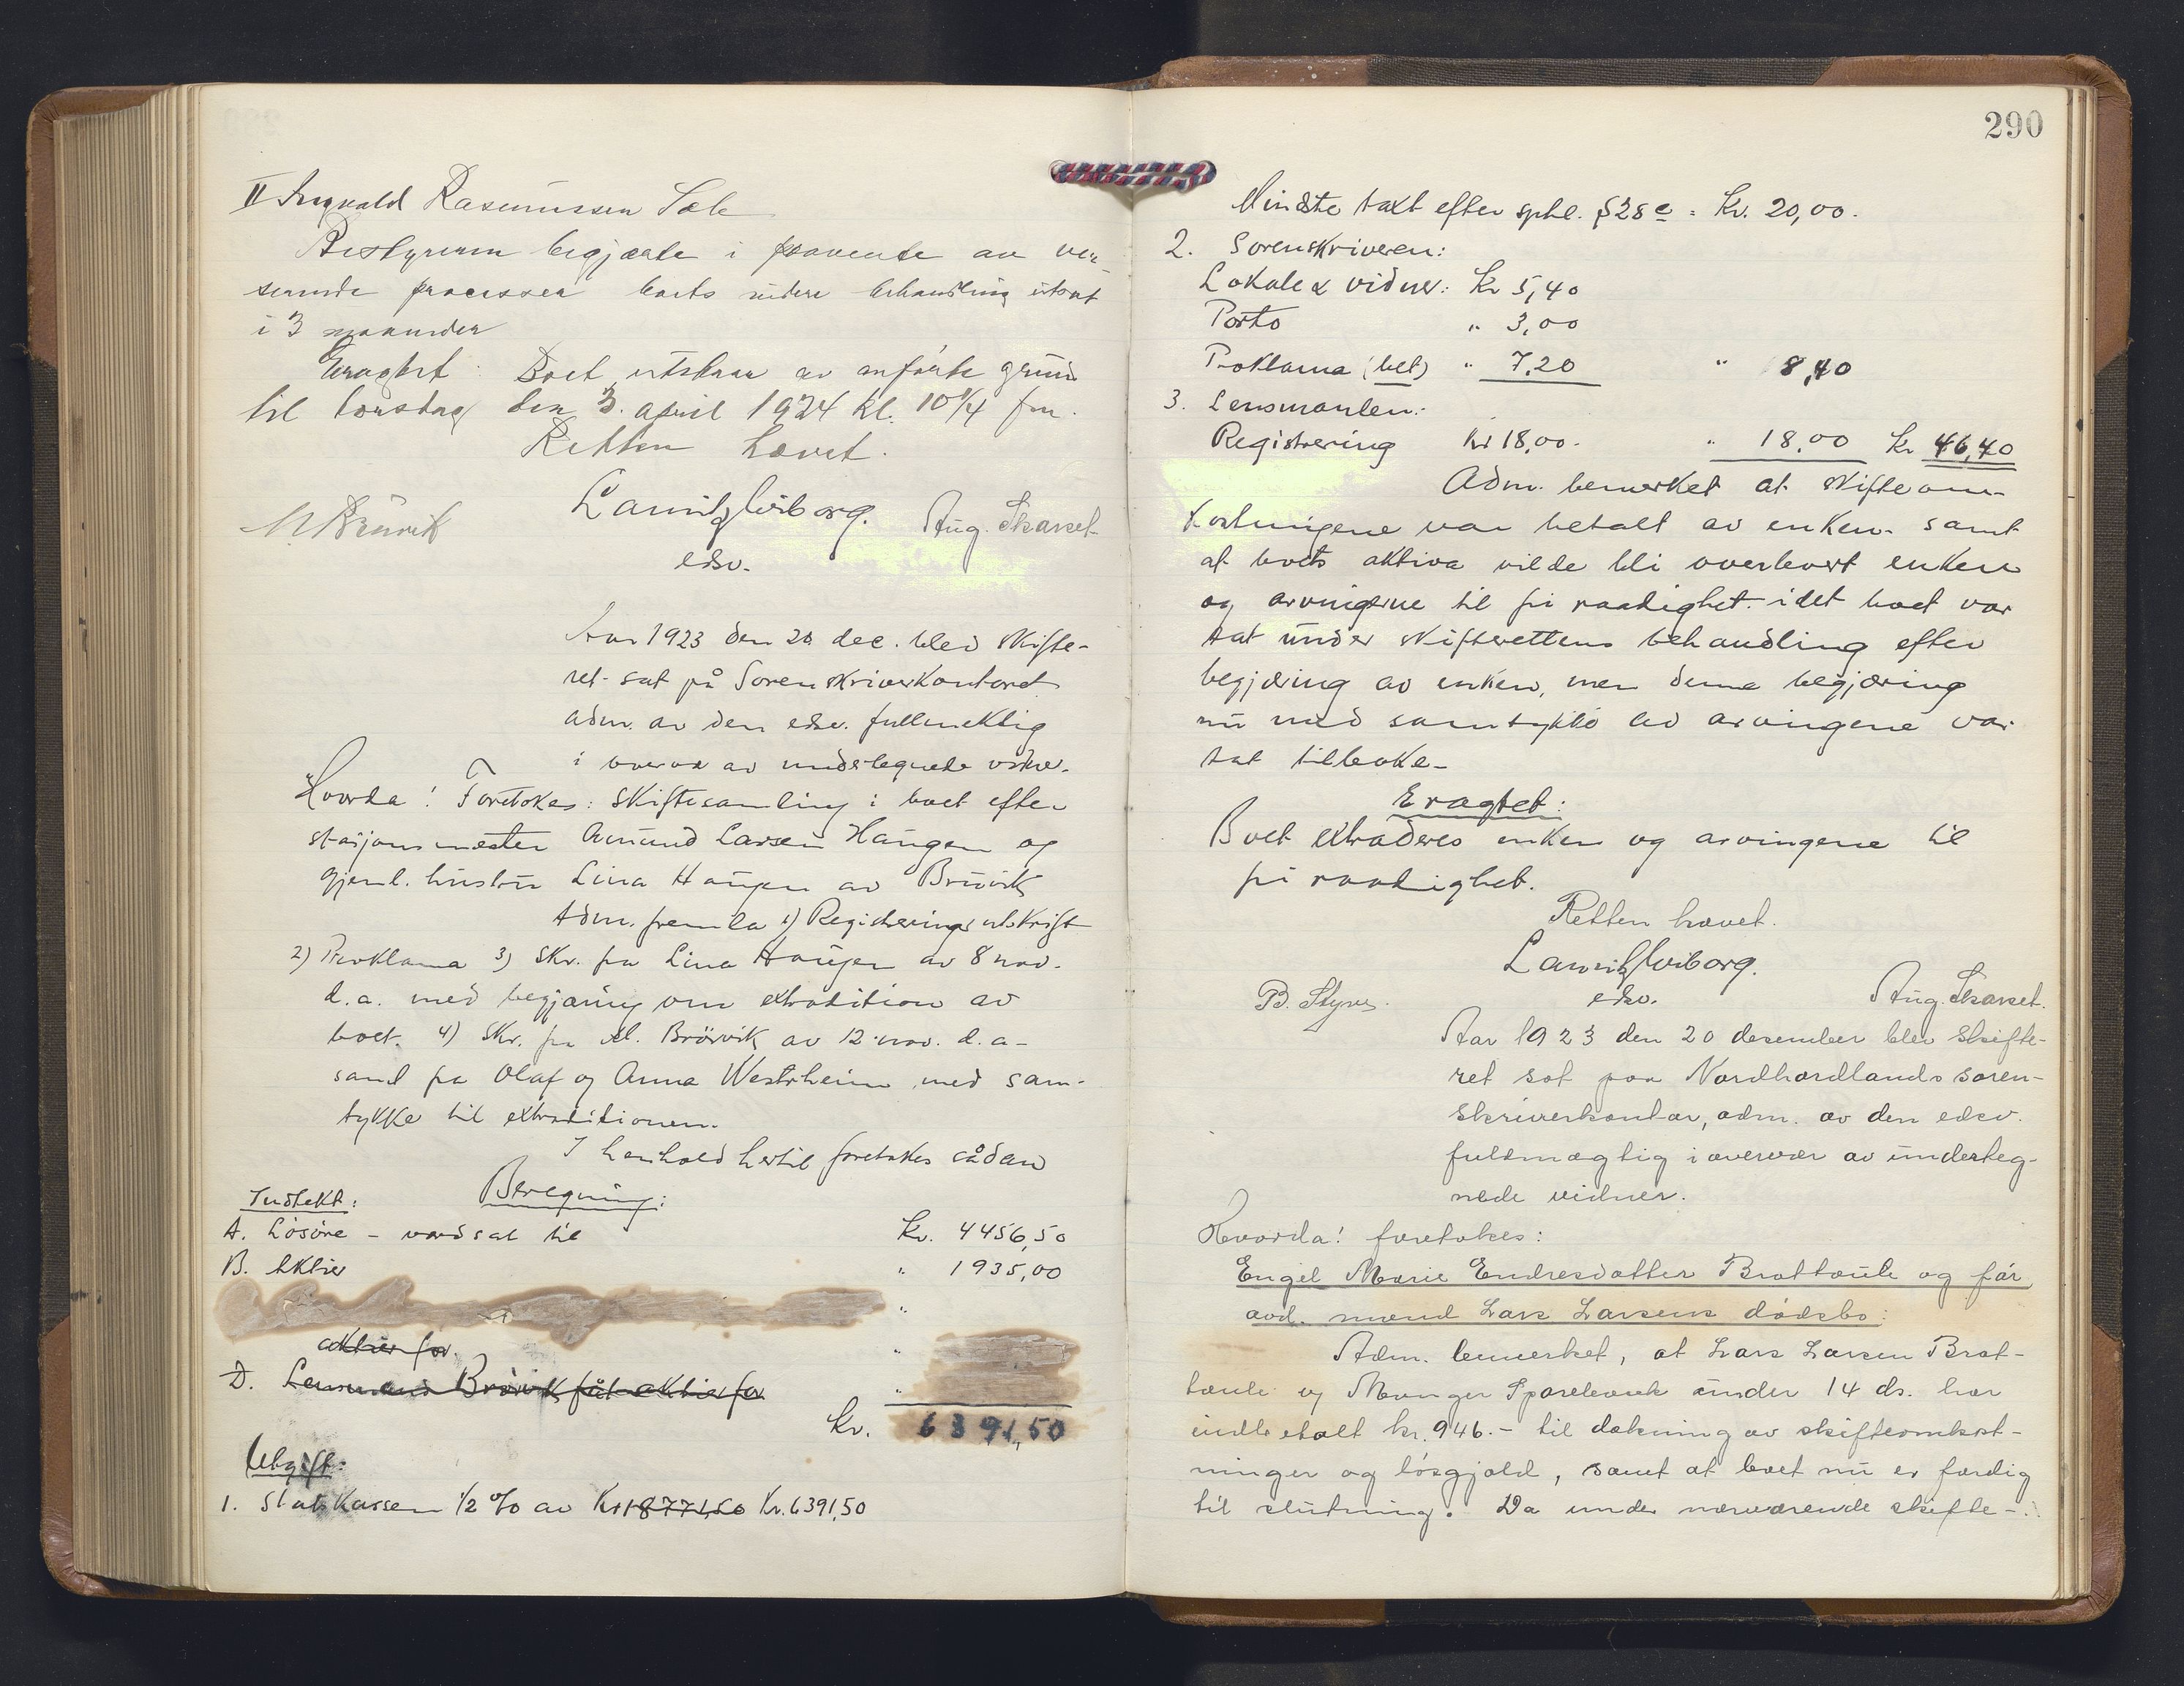 II Ingvald Rasmussen Sæle
Bestyreren begjærte i paavente av ver-
serende processer boets videre behandling utsat
i 3 maaneder
Eragtet: Boet utstaar av anførte grund
til torsdag den 3. april 1924 kl. 10 1/4 fm.
Retten hævet.
Lauritz Wiborg.
edsv.
Aug. Skarset
Aar 1923 den 20 dec. blev skifte-
ret sat på Sorenskriverkontoret
adm. av den edsv. fullmektig
i overvær av undertegnede vidner.
Hvorda! Foretokes: Skiftesamling i boet efter
stasjonsmester Amund Larsen Haugen og
gjenl. hustru Lina Haugen av Bruvik
Adm. fremla 1) Registreringsutskrift
2) Proklama 3) Skr. fra Lina Haugen av 8 nov.
d.a. med begjæring om extradition av
boet. 4) Skr. fra M. Brörvik av 12 nov. d.a.
samt fra Olaf og Anna Westrheim med sam-
tykke til extraditionen.
I henhold hertil foretokes sådan
Beregning:
Indtekt:
A. Lösöre – verdsat til Kr. 4456,50
B. Aktier " 1935,00
"
aktier for. "
D. Lensmand Brörvik fåt aktier for "
Kr. 6391,50
Utgift:
1. Statskassen 1/2 % av Kr 18771,50 Kr. 6391,50
290
Mindste takt efter sptl. § 28 c = Kr. 20,00.
2. Sorenskriveren:
Lokale & vidner: Kr 5,40
Porto " 3,00
Proklama (bet) " 7.20 " 8,40
3. Lensmanden:
Registrering Kr 18,00. " 18.00 Kr 46,40
Adm. bemerket at skifteom-
kostningene var betalt av enken samt
at boets aktiva vilde bli overlevert enken
og arvingerne til fri raadighet idet boet var
tat under skifterettens behandling efter
begjæring av enken, men denne begjæring
nu med samtykke av arvingene var
tat tilbake.
Eragtet:
Boet extraderes enken og arvingene til
fri raadighet.
Retten hævet.
Lauritz Wiborg.
B. Styve. edsv. Aug. Skarset.
Aar 1923 den 20 desember blev skifte-
ret sat paa Nordhordlands soren-
skriverkontor, adm. av den edsv.
fuldmægtig i overvær av underteg-
nede vidner.
Hvorda! foretokes:
Engel Marie Endresdatter Brattaule og før
avd. mand Lars Larsens dødsbo:
Adm. bemerket, at Lars Larsen Brat-
taule og Manger Sparebank under 14 ds. har
indbetalt kr. 946.– til dækning av skifteomkost-
ninger og løsgjæld, samt at boet nu er færdig
til slutning. Da under nærværende skifte-